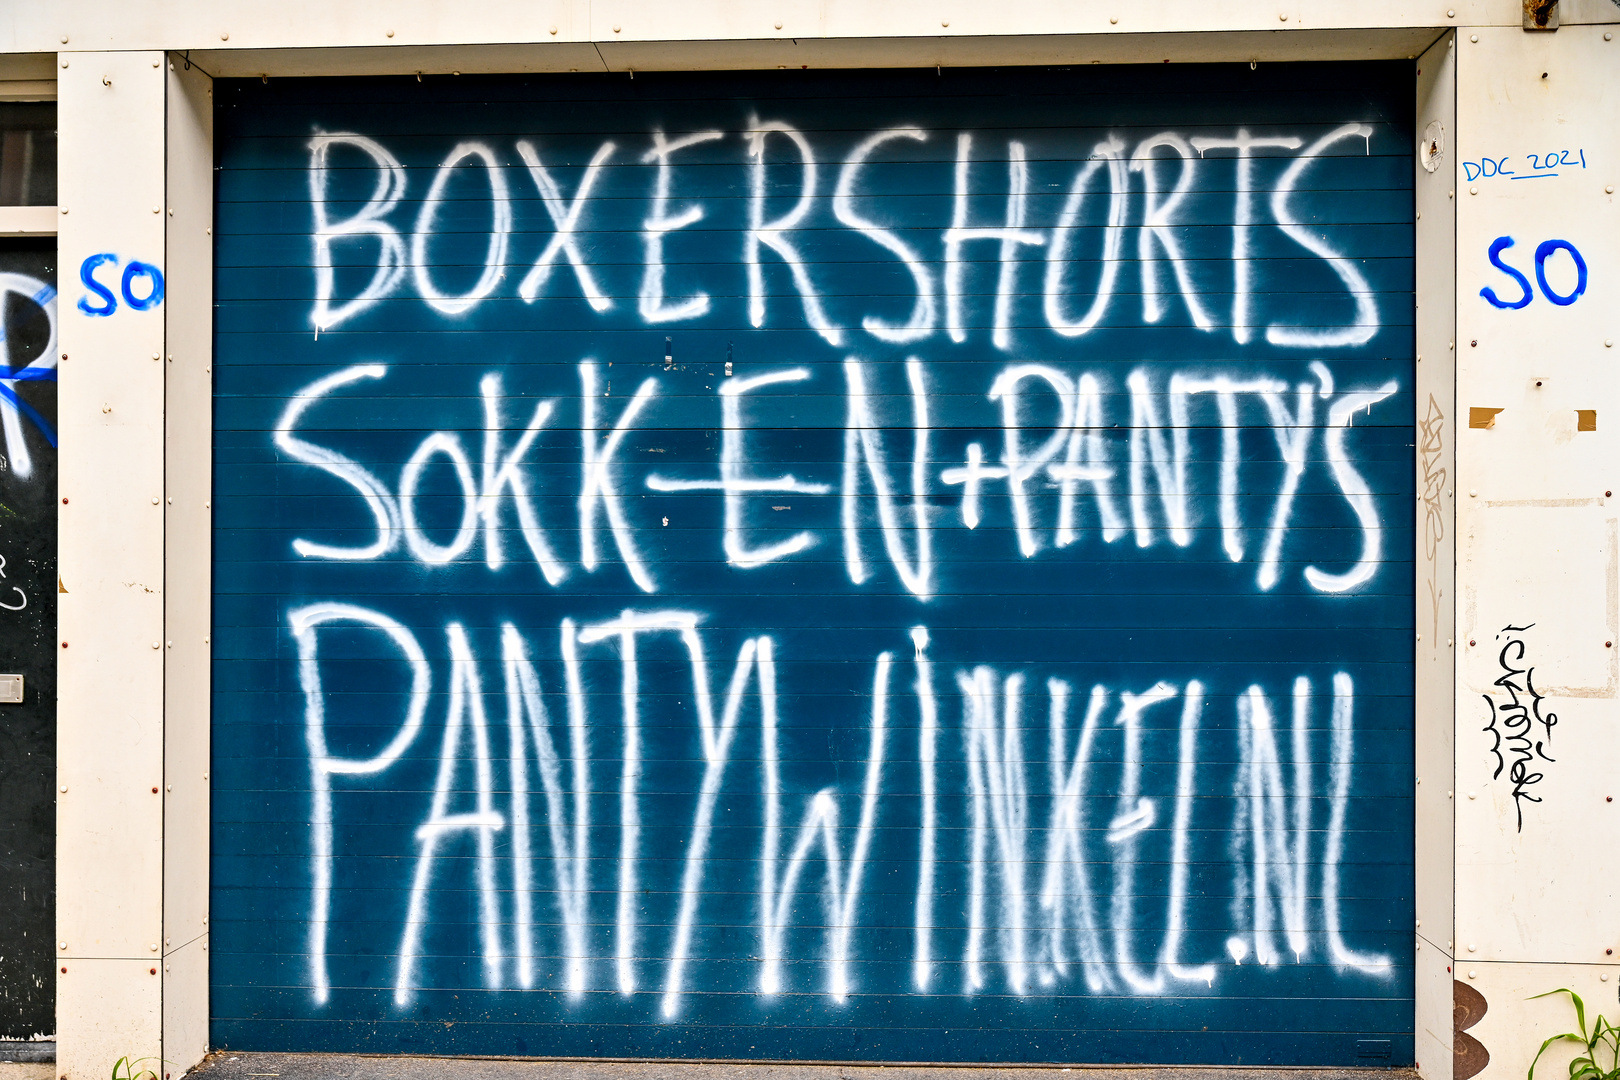 BOXERSHORTS
SOKKEN+PANTY'S
PANTYWINKEL.NL
SO
DDC 2021
SO